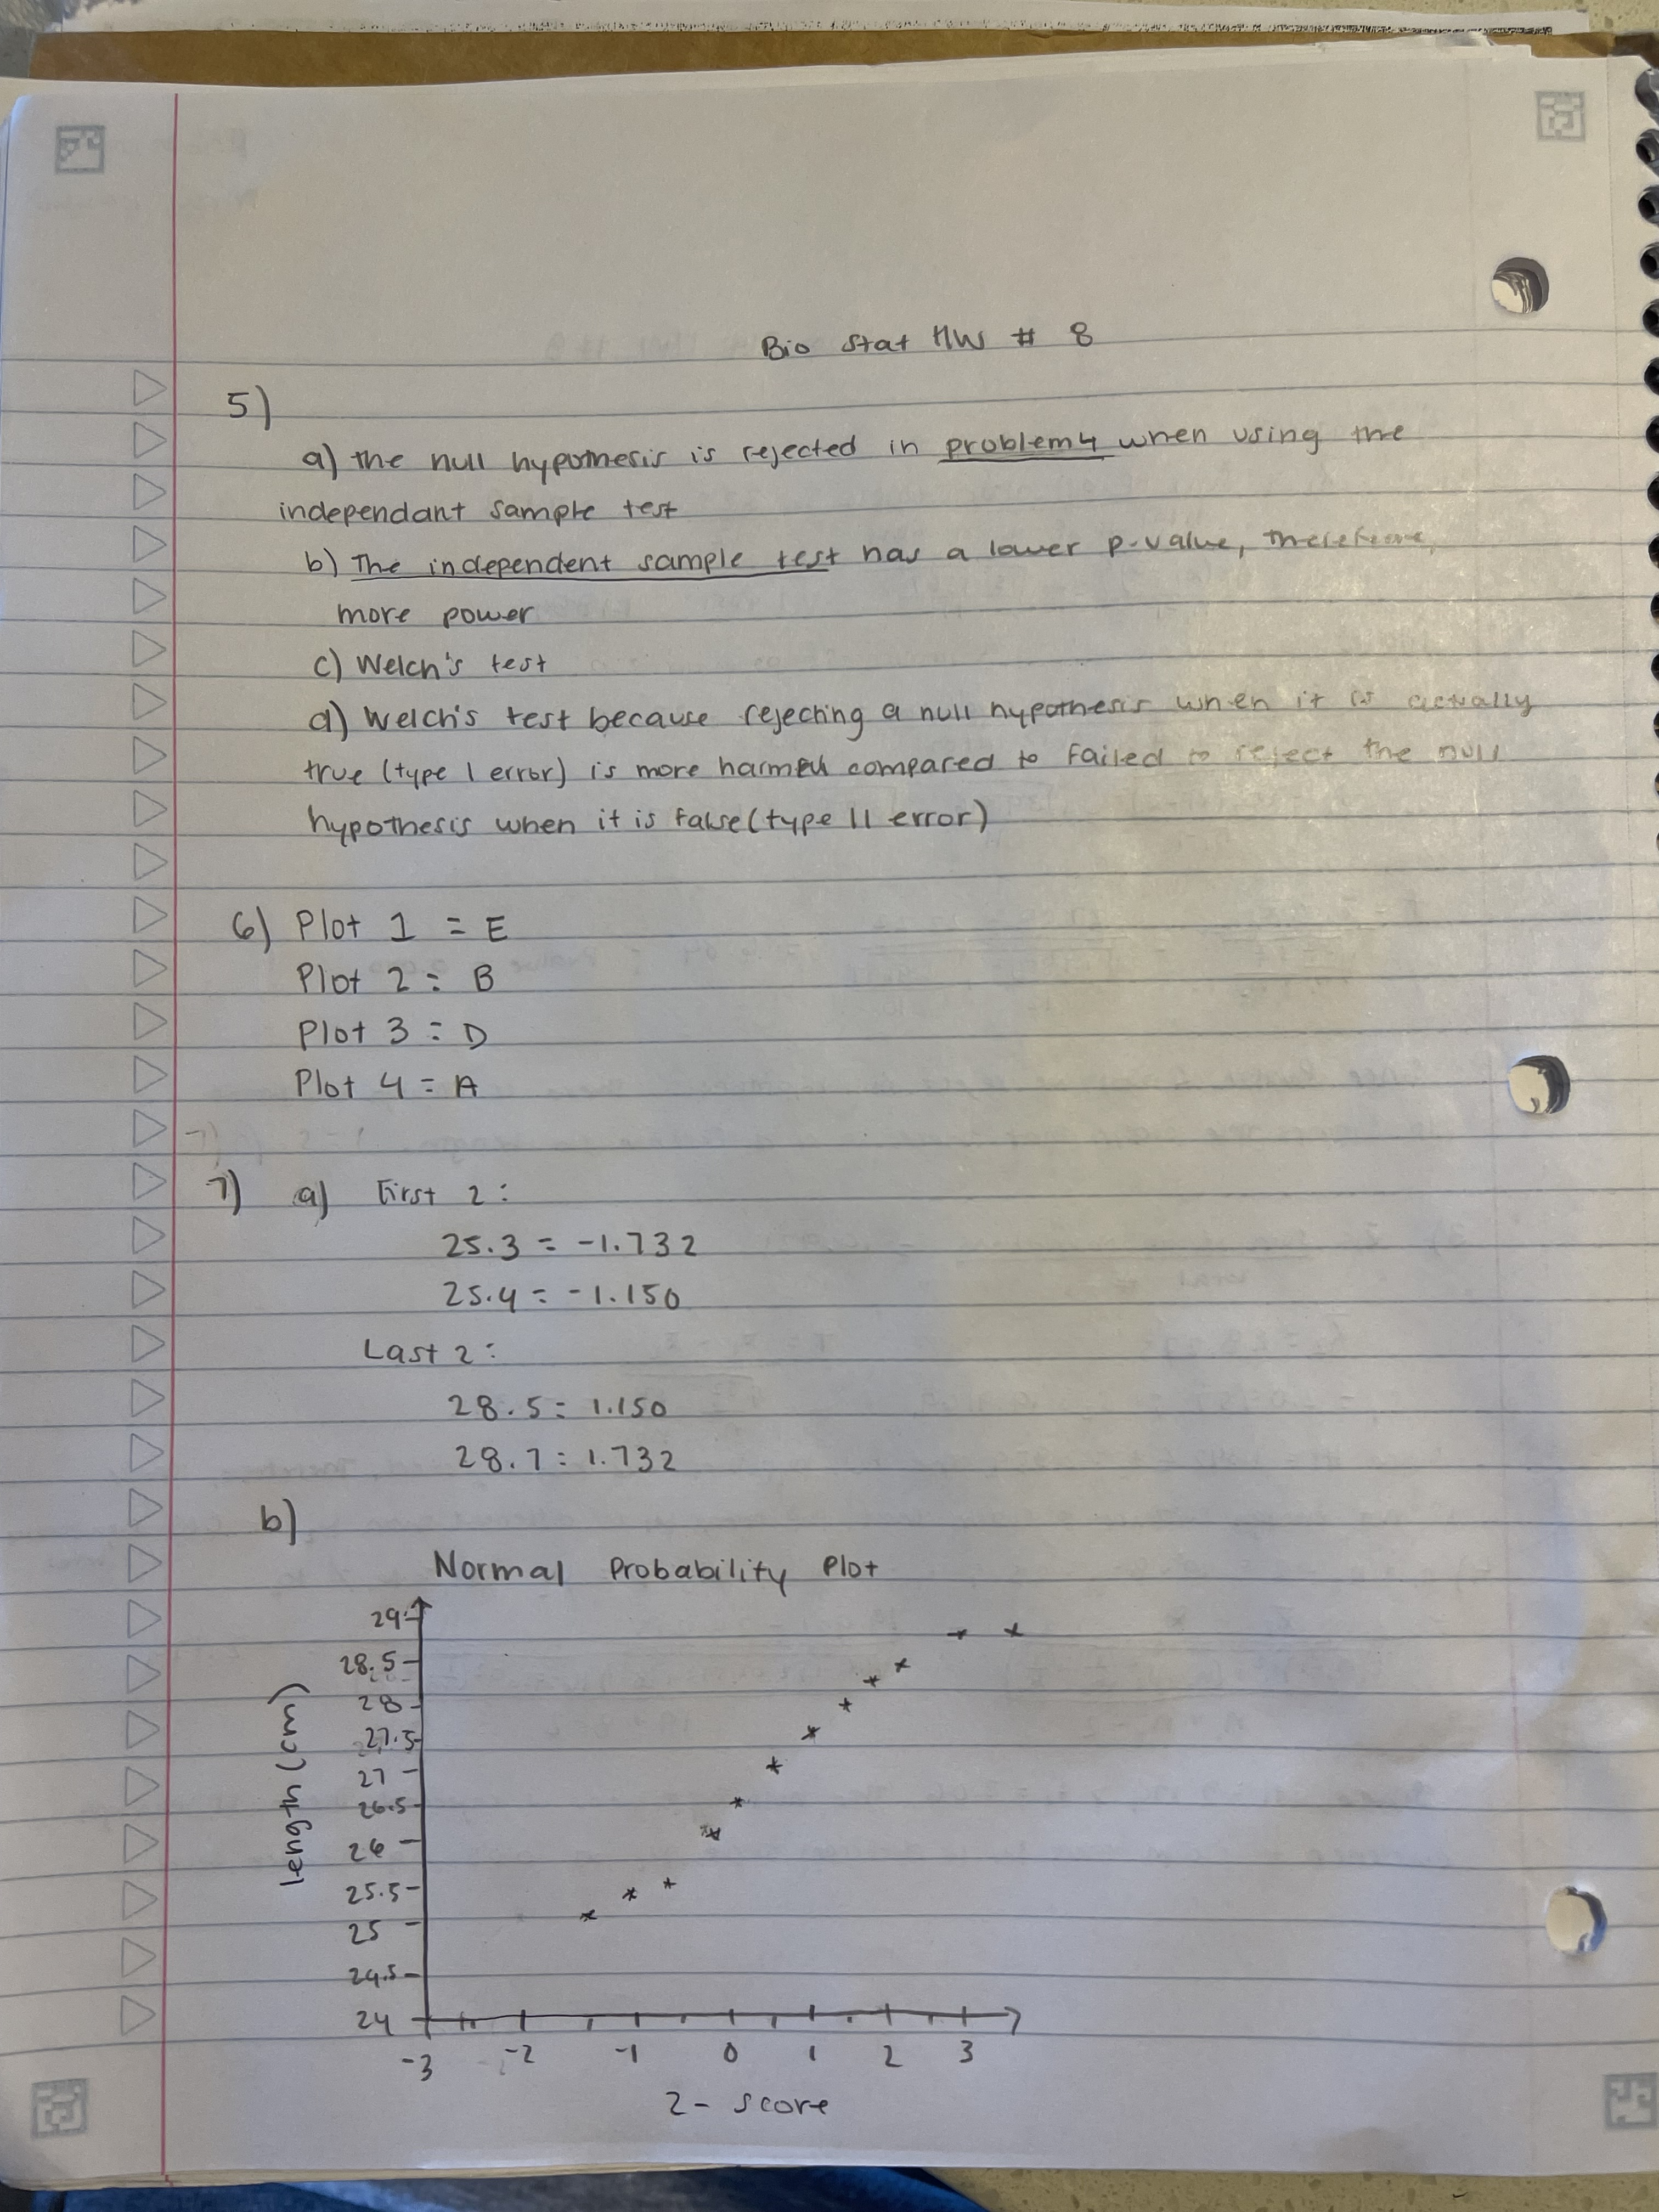 Bio Stat HW # 8
5)
a) the null hypothesis is rejected in problem 4 when using the
independant sample test
b) The independent sample test has a lower p-value, therefore,
more power
c) Welch's test
d) Welch's test because rejecting a null hypothesis when it is actually
true (type 1 error) is more harmful compared to failed to reject the null
hypothesis when it is false (type 11 error)
6) Plot 1 = E
Plot 2 = B
Plot 3 = D
Plot 4 = A
7) a) First 2:
25.3 = -1.732
25.4 = -1.150
Last 2:
28.5 = 1.150
28.7 = 1.732
b)
Normal Probability Plot
29
28.5
28
27.5
27
26.5
26
25.5
25
24.5
24
length (cm)
-3 -2 -1 0 1 2 3
z- score